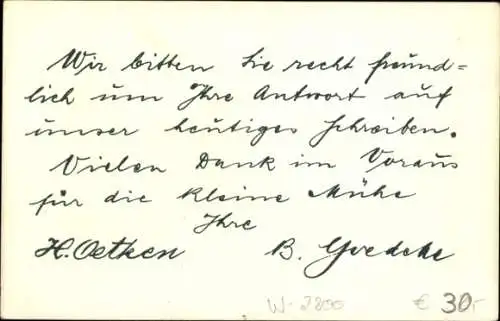 Wir bitten Sie recht freund=
lich um Ihre Antwort auf
unser heutiges Schreiben.
Vielen Dank im Voraus
für die kleine Mühe
Ihre
H. Oetken B. Goedeke
W-2800 € 30,-